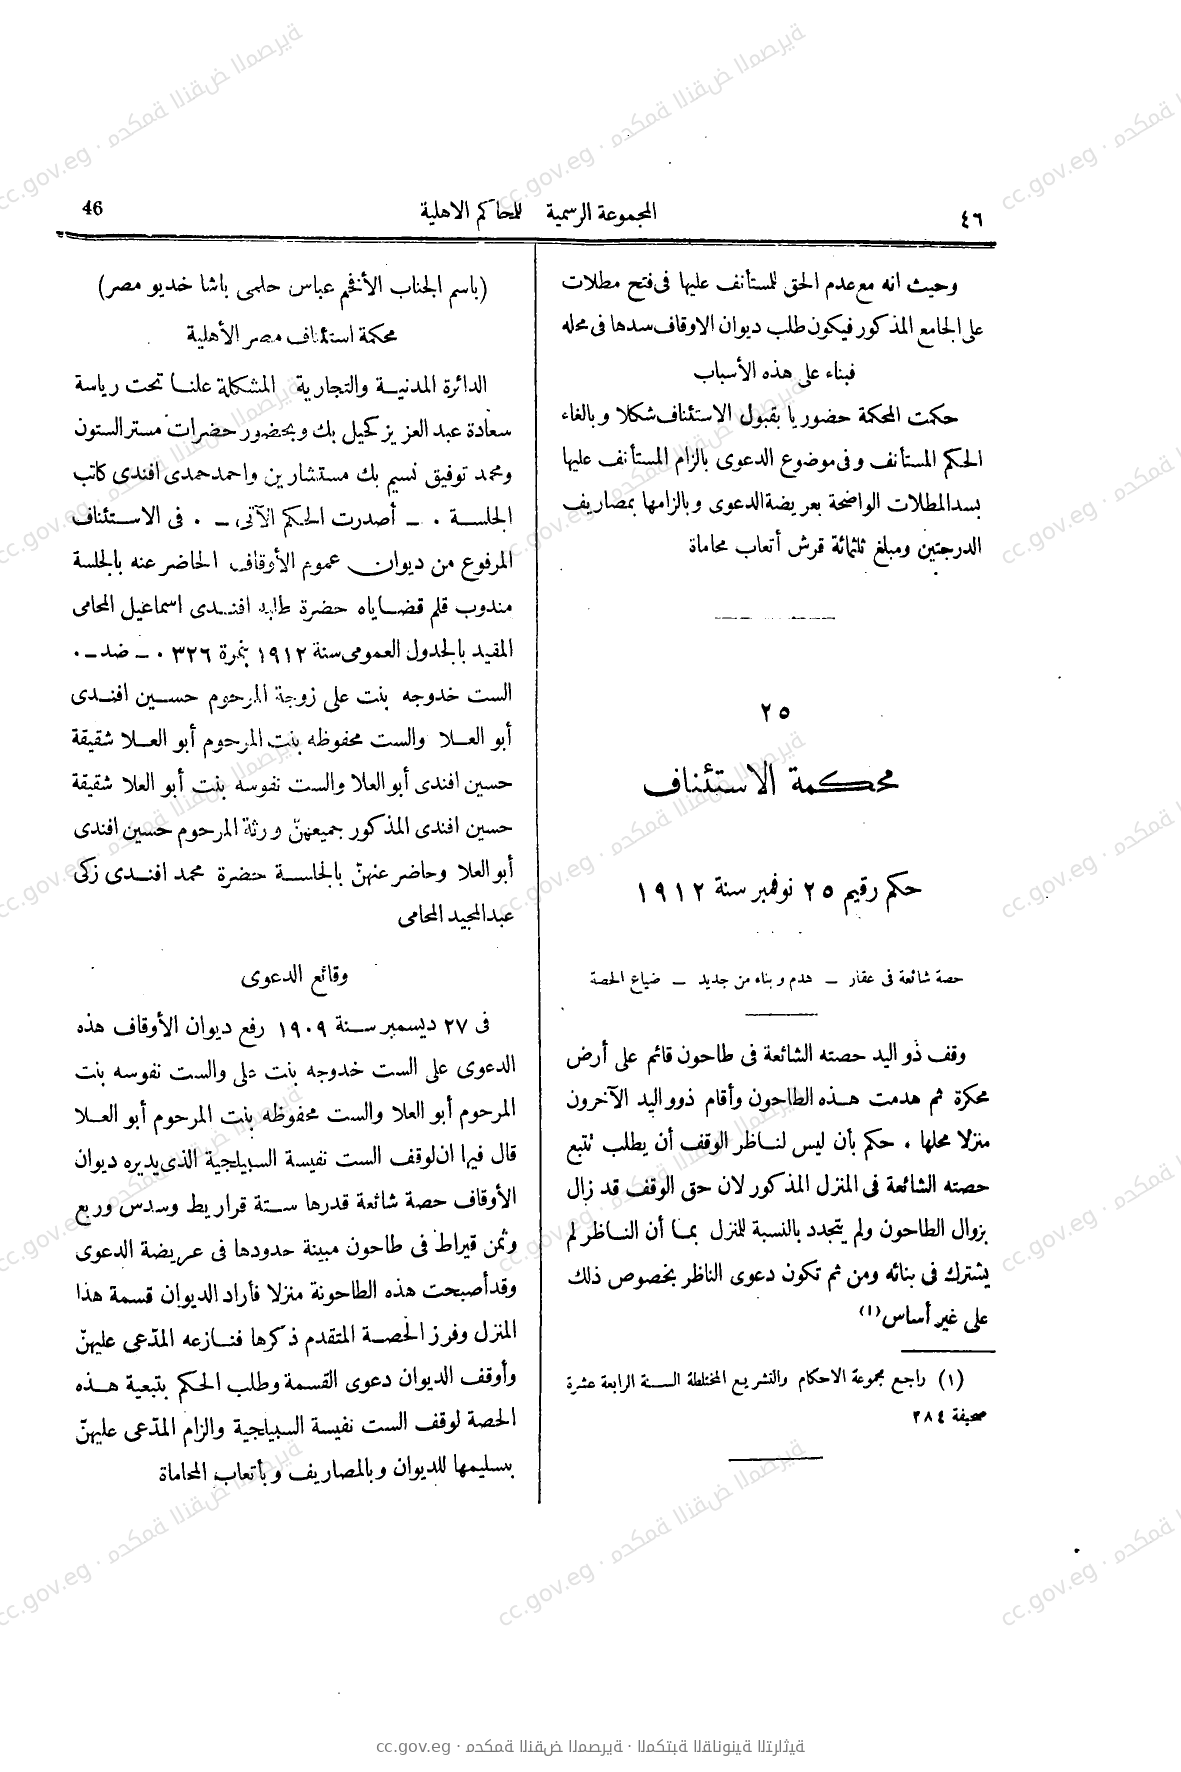 ٤٦
المجموعة الرسمية للمحاكم الاهلية
46
وحيث انه مع عدم الحق للمستأنف عليها فى فتح مطلات
على الجامع المذكور فيكون طلب ديوان الاوقاف سدها فى محله
فبناء على هذه الأسباب
حكمت المحكمة حضوريا بقبول الاستئناف شكلا وبالغاء
الحكم المستأنف وفى موضوع الدعوى بالزام المستأنف عليها
بسد المطلات الواضحة بعريضة الدعوى وبالزامها بمصاريف
الدرجتين ومبلغ ثلثمائة قرش أتعاب محاماة
٢٥
محكمة الاستئناف
حكم رقيم ٢٥ نوفمبر سنة ١٩١٢
حصة شائعة فى عقار – هدم وبناء من جديد – ضياع الحصة
وقف ذو اليد حصته الشائعة فى طاحون قائم على أرض
محكرة ثم هدمت هذه الطاحون وأقام ذوو اليد الآخرون
منزلا محلها . حكم بأن ليس لناظر الوقف أن يطلب تتبع
حصته الشائعة فى المنزل المذكور لان حق الوقف قد زال
بزوال الطاحون ولم يتجدد بالنسبة للمنزل بما أن الناظر لم
يشترك فى بنائه ومن ثم تكون دعوى الناظر بخصوص ذلك
على غير أساس (١)
(١) راجع مجموعة الاحكام والتشريع المختلطة السنة الرابعة عشرة
صحيفة ٣٨٤
(باسم الجناب الأفخم عباس حلمى باشا خديو مصر)
محكمة استئناف مصر الأهلية
الدائرة المدنية والتجارية المشكلة علنا تحت رياسة
سعادة عبد العزيز كحيل بك وبحضور حضرات مستر الستون
ومحمد توفيق نسيم بك مستشارين واحمد حمدى افندى كاتب
الجلسة . – أصدرت الحكم الآتى – . فى الاستئناف
المرفوع من ديوان عموم الأوقاف الحاضر عنه بالجلسة
مندوب قلم قضاياه حضرة طلبه افندى اسماعيل المحامى
المقيد بالجدول العمومى سنة ١٩١٢ بنمرة ٣٢٦ . – ضد – .
الست خدوجه بنت على زوجة المرحوم حسين افندى
أبو العلا والست محفوظه بنت المرحوم أبو العلا شقيقة
حسين افندى أبو العلا والست نفوسه بنت أبو العلا شقيقة
حسين افندى المذكور جميعهنّ ورثة المرحوم حسين افندى
أبو العلا وحاضر عنهنّ بالجلسة حضرة محمد افندى زكى
عبد المجيد المحامى
وقائع الدعوى
فى ٢٧ ديسمبر سنة ١٩٠٩ رفع ديوان الأوقاف هذه
الدعوى على الست خدوجه بنت على والست نفوسه بنت
المرحوم أبو العلا والست محفوظه بنت المرحوم أبو العلا
قال فيها ان لوقف الست نفيسة السبيلجية الذى يديره ديوان
الأوقاف حصة شائعة قدرها ستة قراريط وسدس وربع
وثمن قيراط فى طاحون مبينة حدودها فى عريضة الدعوى
وقد أصبحت هذه الطاحونة منزلا فأراد الديوان قسمة هذا
المنزل وفرز الحصة المتقدم ذكرها فنازعه المدّعى عليهنّ
وأوقف الديوان دعوى القسمة وطلب الحكم بتبعية هذه
الحصة لوقف الست نفيسة السبيلجية والزام المدّعى عليهنّ
بتسليمها للديوان وبالمصاريف وبأتعاب المحاماة
cc.gov.eg · محكمة النقض المصرية · المكتبة القانونية التراثية